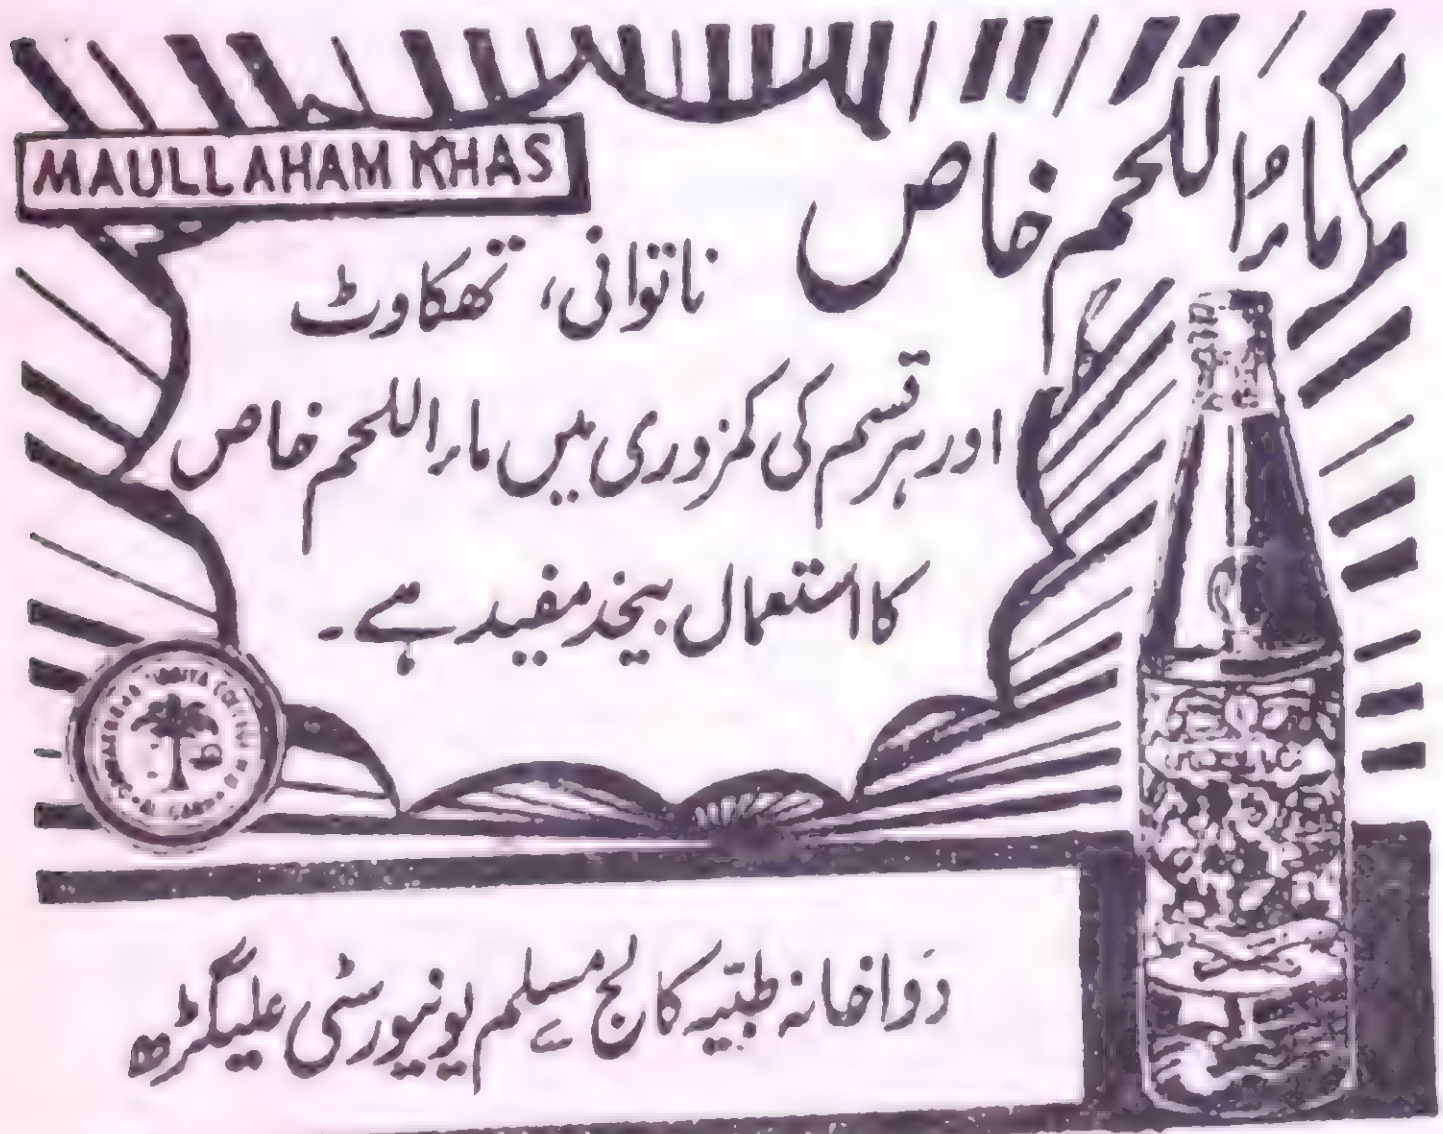 MAULLAHAM KHAS
ماءُ اللحم خاص
ناتوانی، تھکاوٹ
اور ہر قسم کی کمزوری میں ماء اللحم خاص
کا استعمال بیحد مفید ہے۔
دَواخانہ طبّیہ کالج مسلم یونیورسٹی علیگڑھ